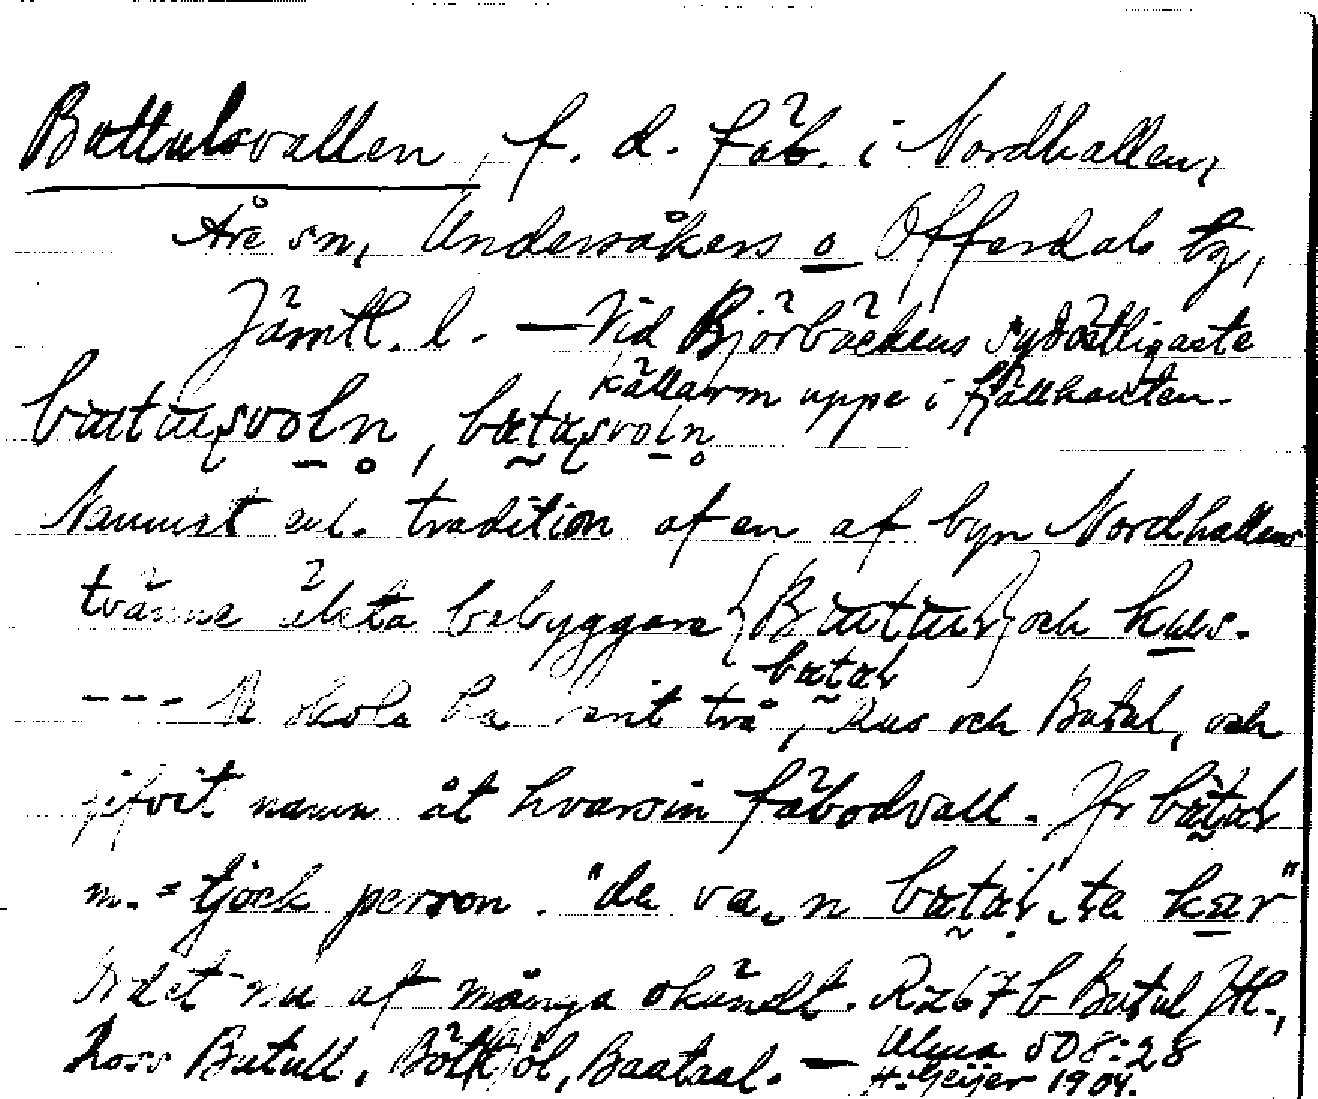 Buttulsvallen, f. d. fäb. i Nordhallen,
Åre sn, Undersåkers o Offerdals tg,
Jämtl. l. — Vid Björbäckens sydöstligaste
källarm uppe i fjällkanten.
Namnet enl. tradition af en af byn Nordhallens
tvänne äldsta bebyggare och kus.
--- De skola ha varit två, Kus och Butul, och
gifvit namn åt hvarsin fäbodvall. Jfr
m. = tjock person. "de va n te kar"
Ordet nu af många okändt. Rz 67 b Butul Jtl.,
Ross Butull, Baataal. — Ulma 508:28
H. Geijer 1904.